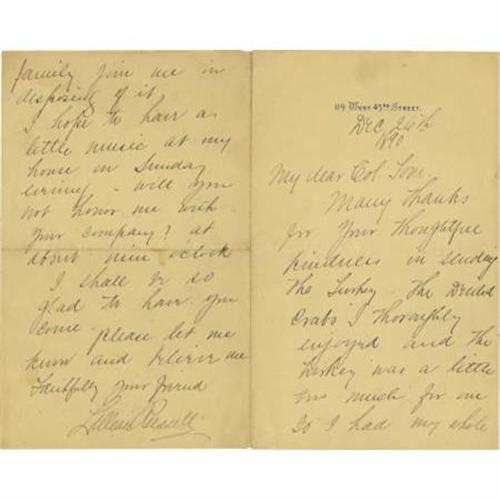 119 West 45th Street.
Dec. 26th
1890
My dear Col
Many thanks
for your thoughtful
kindness in sending
the Turkey. The Deviled
Crabs I thoroughly
enjoyed and the
Turkey was a little
too much for me
so I had my whole
family join me in
disposing of it
I hope to have a
little music at my
house on Sunday
evening - will you
not honor me with
your company? at
about nine oclock
I shall be so
glad to have you
come. please let me
know and believe me
Faithfully your friend
Lillian Russell